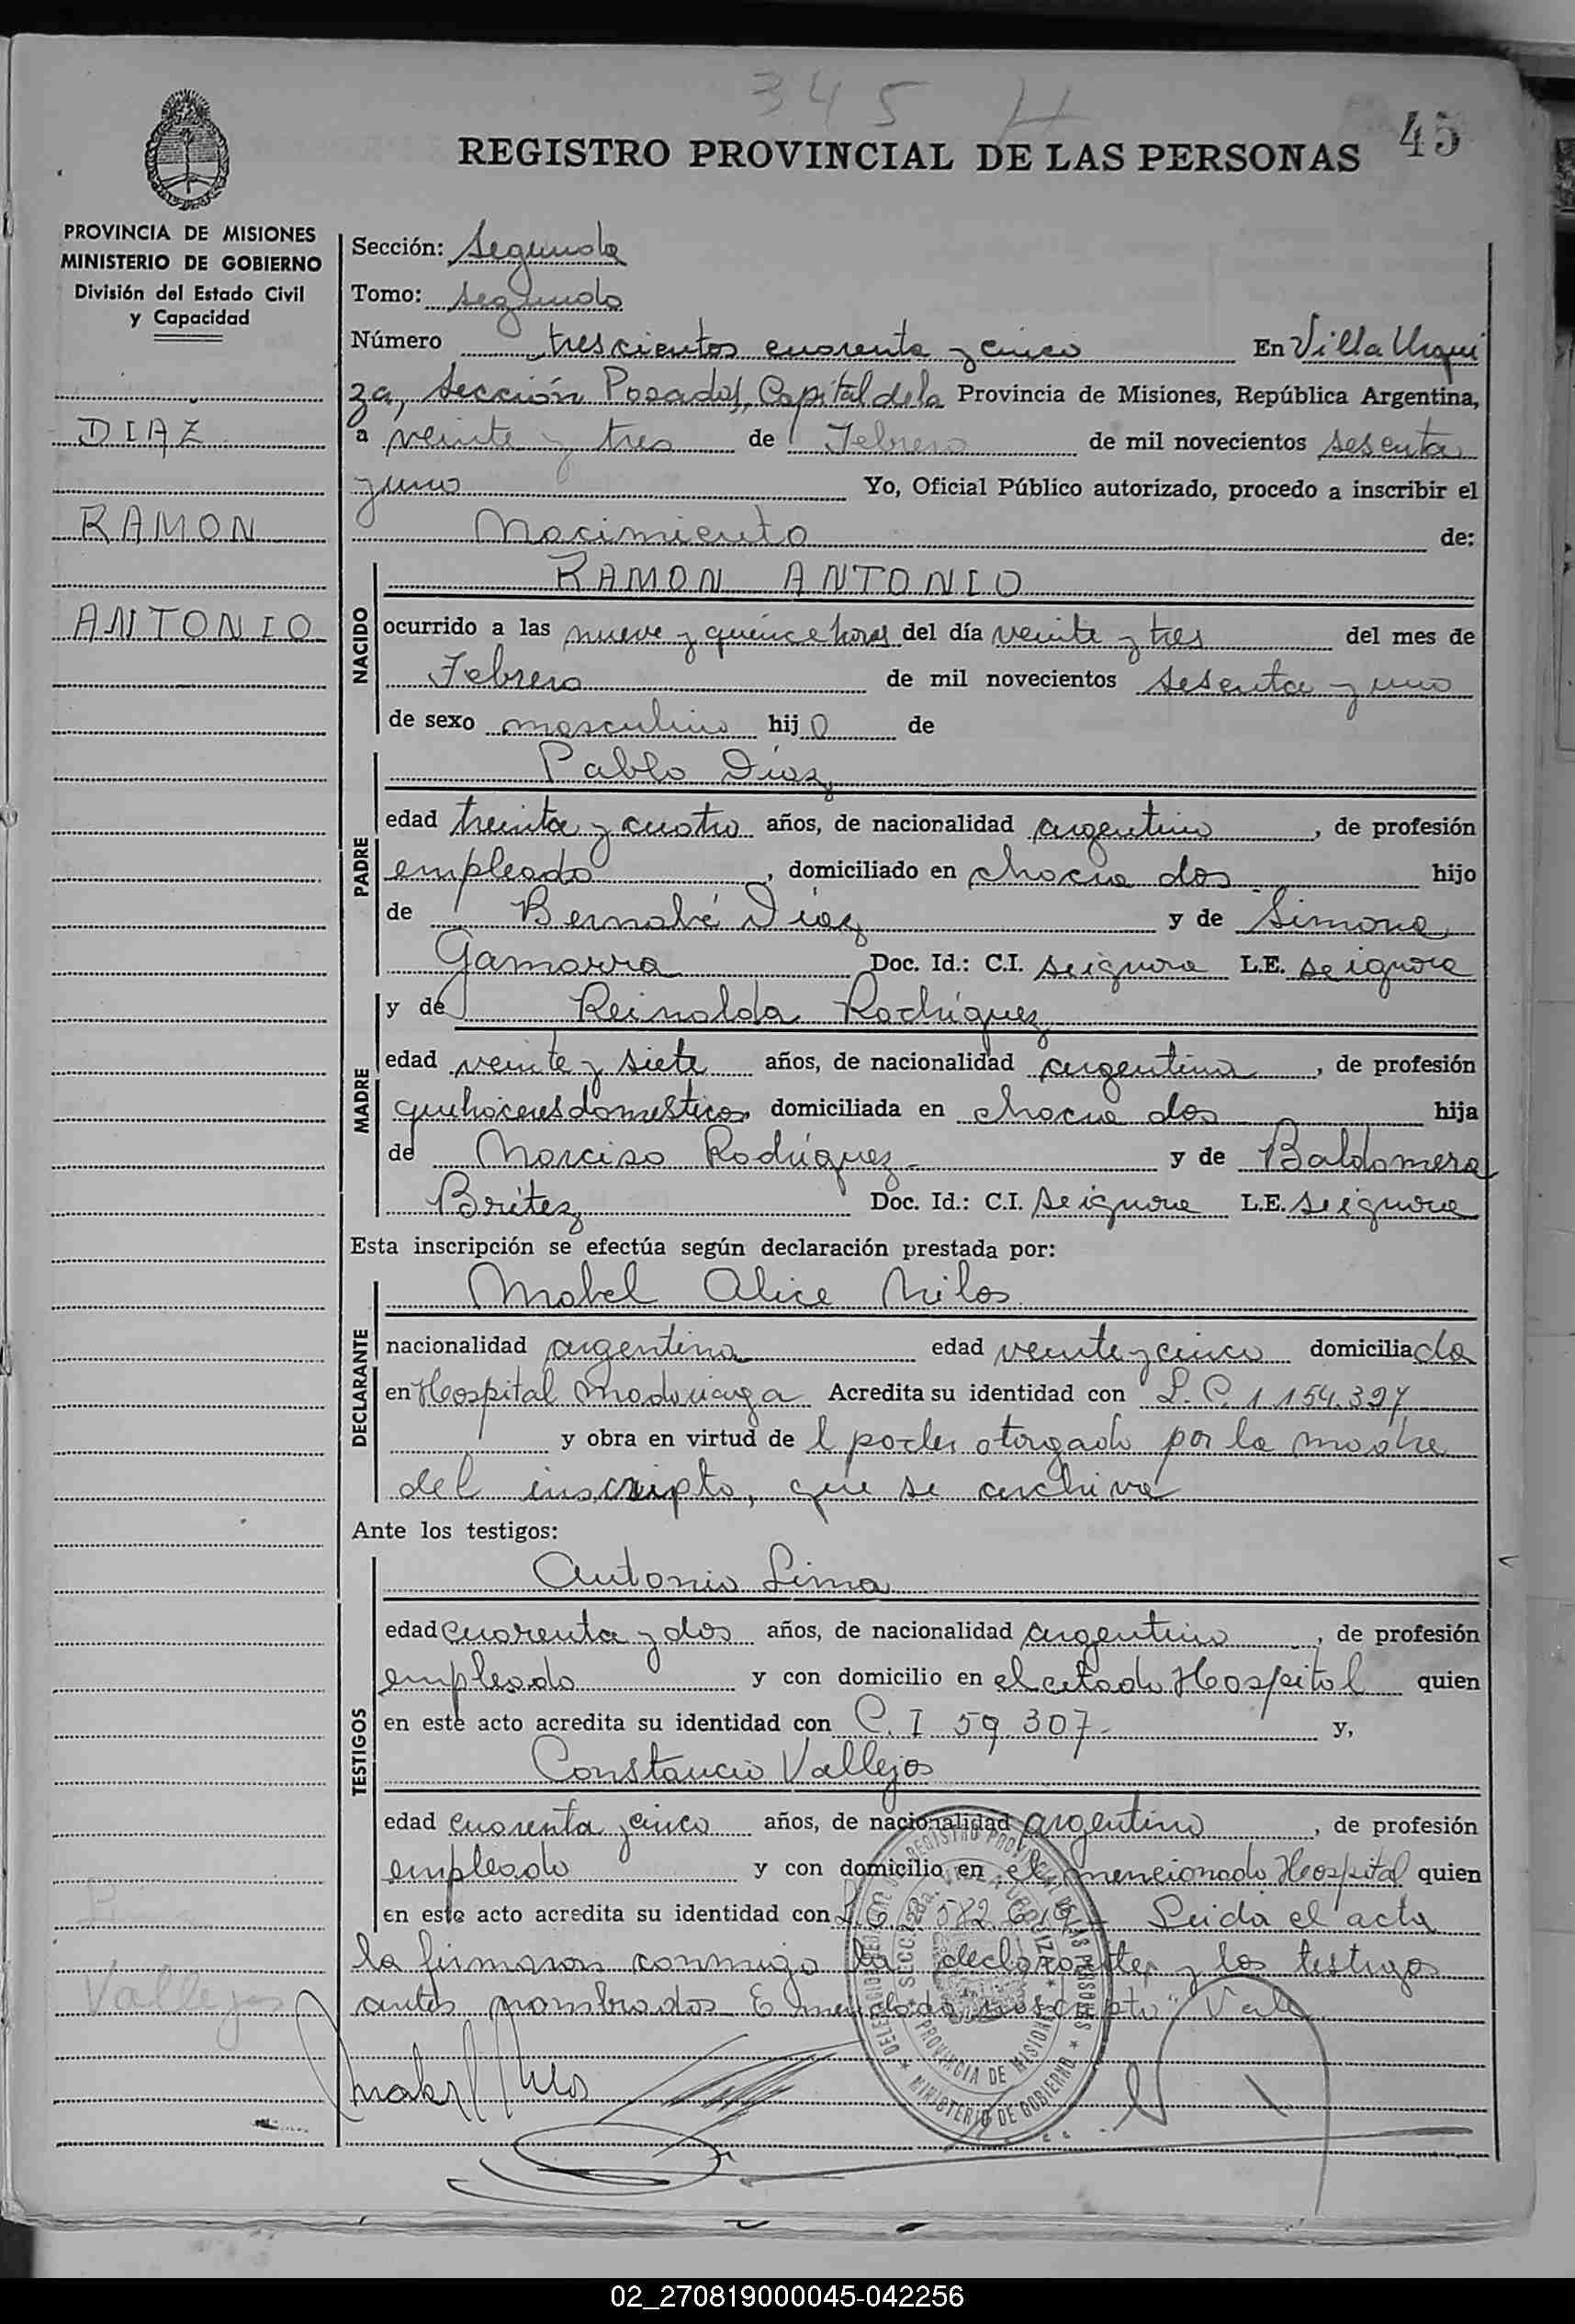 345 H
REGISTRO PROVINCIAL DE LAS PERSONAS 45
PROVINCIA DE MISIONES
MINISTERIO DE GOBIERNO
División del Estado Civil
y Capacidad
DIAZ
RAMON
ANTONIO
Sección: Segunda
Tomo: segundo
Número trescientos cuarenta y cinco En Villa Urqui
za, Sección Posadas, Capital de la Provincia de Misiones, República Argentina,
a veinte y tres de Febrero de mil novecientos sesenta
y uno Yo, Oficial Público autorizado, procedo a inscribir el
Nacimiento de:
NACIDO
RAMON ANTONIO
ocurrido a las nueve y quince horas del día veinte y tres del mes de
Febrero de mil novecientos sesenta y uno
de sexo masculino hijo de
PADRE
Pablo Díaz
edad treinta y cuatro años, de nacionalidad argentino, de profesión
empleado, domiciliado en chacra dos hijo
de Bernabé Díaz y de Simona
Gamarra Doc. Id.: C.I. se ignora L.E. se ignora
MADRE
y de Reinalda Rodríguez
edad veinte y siete años, de nacionalidad argentina, de profesión
quehaceres domesticos domiciliada en chacra dos hija
de Narciso Rodríguez y de Baldomera
Britez Doc. Id.: C.I. se ignora L.E. se ignora
Esta inscripción se efectúa según declaración prestada por:
DECLARANTE
Mabel Alice Milos
nacionalidad argentina edad veinte y cinco domiciliada
en Hospital Madariaga Acredita su identidad con L.C. 1.154.397
y obra en virtud del poder otorgado por la madre
del inscripto, que se archiva
Ante los testigos:
TESTIGOS
Antonio Lima
edad cuarenta y dos años, de nacionalidad argentino, de profesión
empleado y con domicilio en el citado Hospital quien
en este acto acredita su identidad con C. I 59 307- y,
Constancio Vallejos
edad cuarenta y cinco años, de nacionalidad argentino, de profesión
empleado y con domicilio en el mencionado Hospital quien
en este acto acredita su identidad con Leida el acta
la firmaron conmigo la declarante y los testigos
antes nombrados Enmendado: inscripto: Vale
Lima
Vallejos
Mabel Milos
REGISTRO PROVINCIAL DE LAS PERSONAS
PROVINCIA DE MISIONES
MINISTERIO DE GOBIERNO
02_270819000045-042256